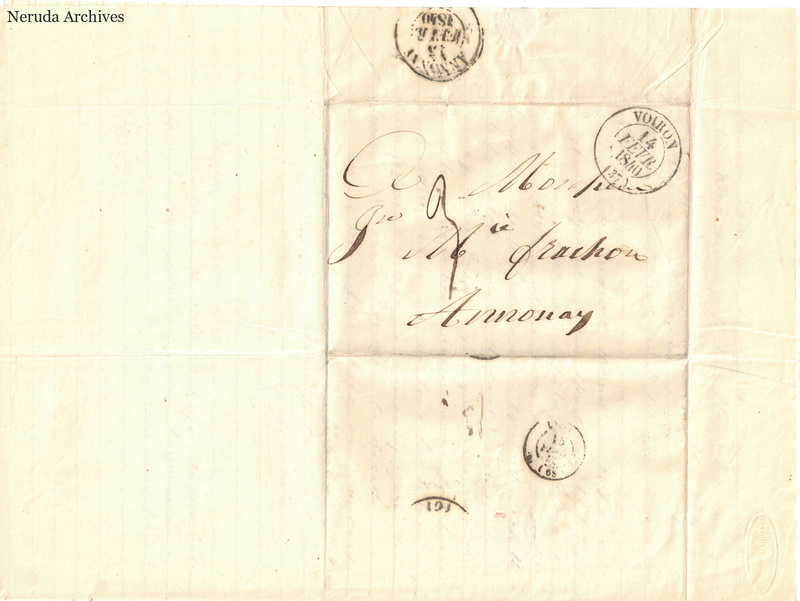 Neruda Archives
ANNONAY
15
FEVR.
1840
VOIRON
14
FEVR
1840
(37)
A Monsieur
Jn Mie frachon
Annonay
3
15
(68)